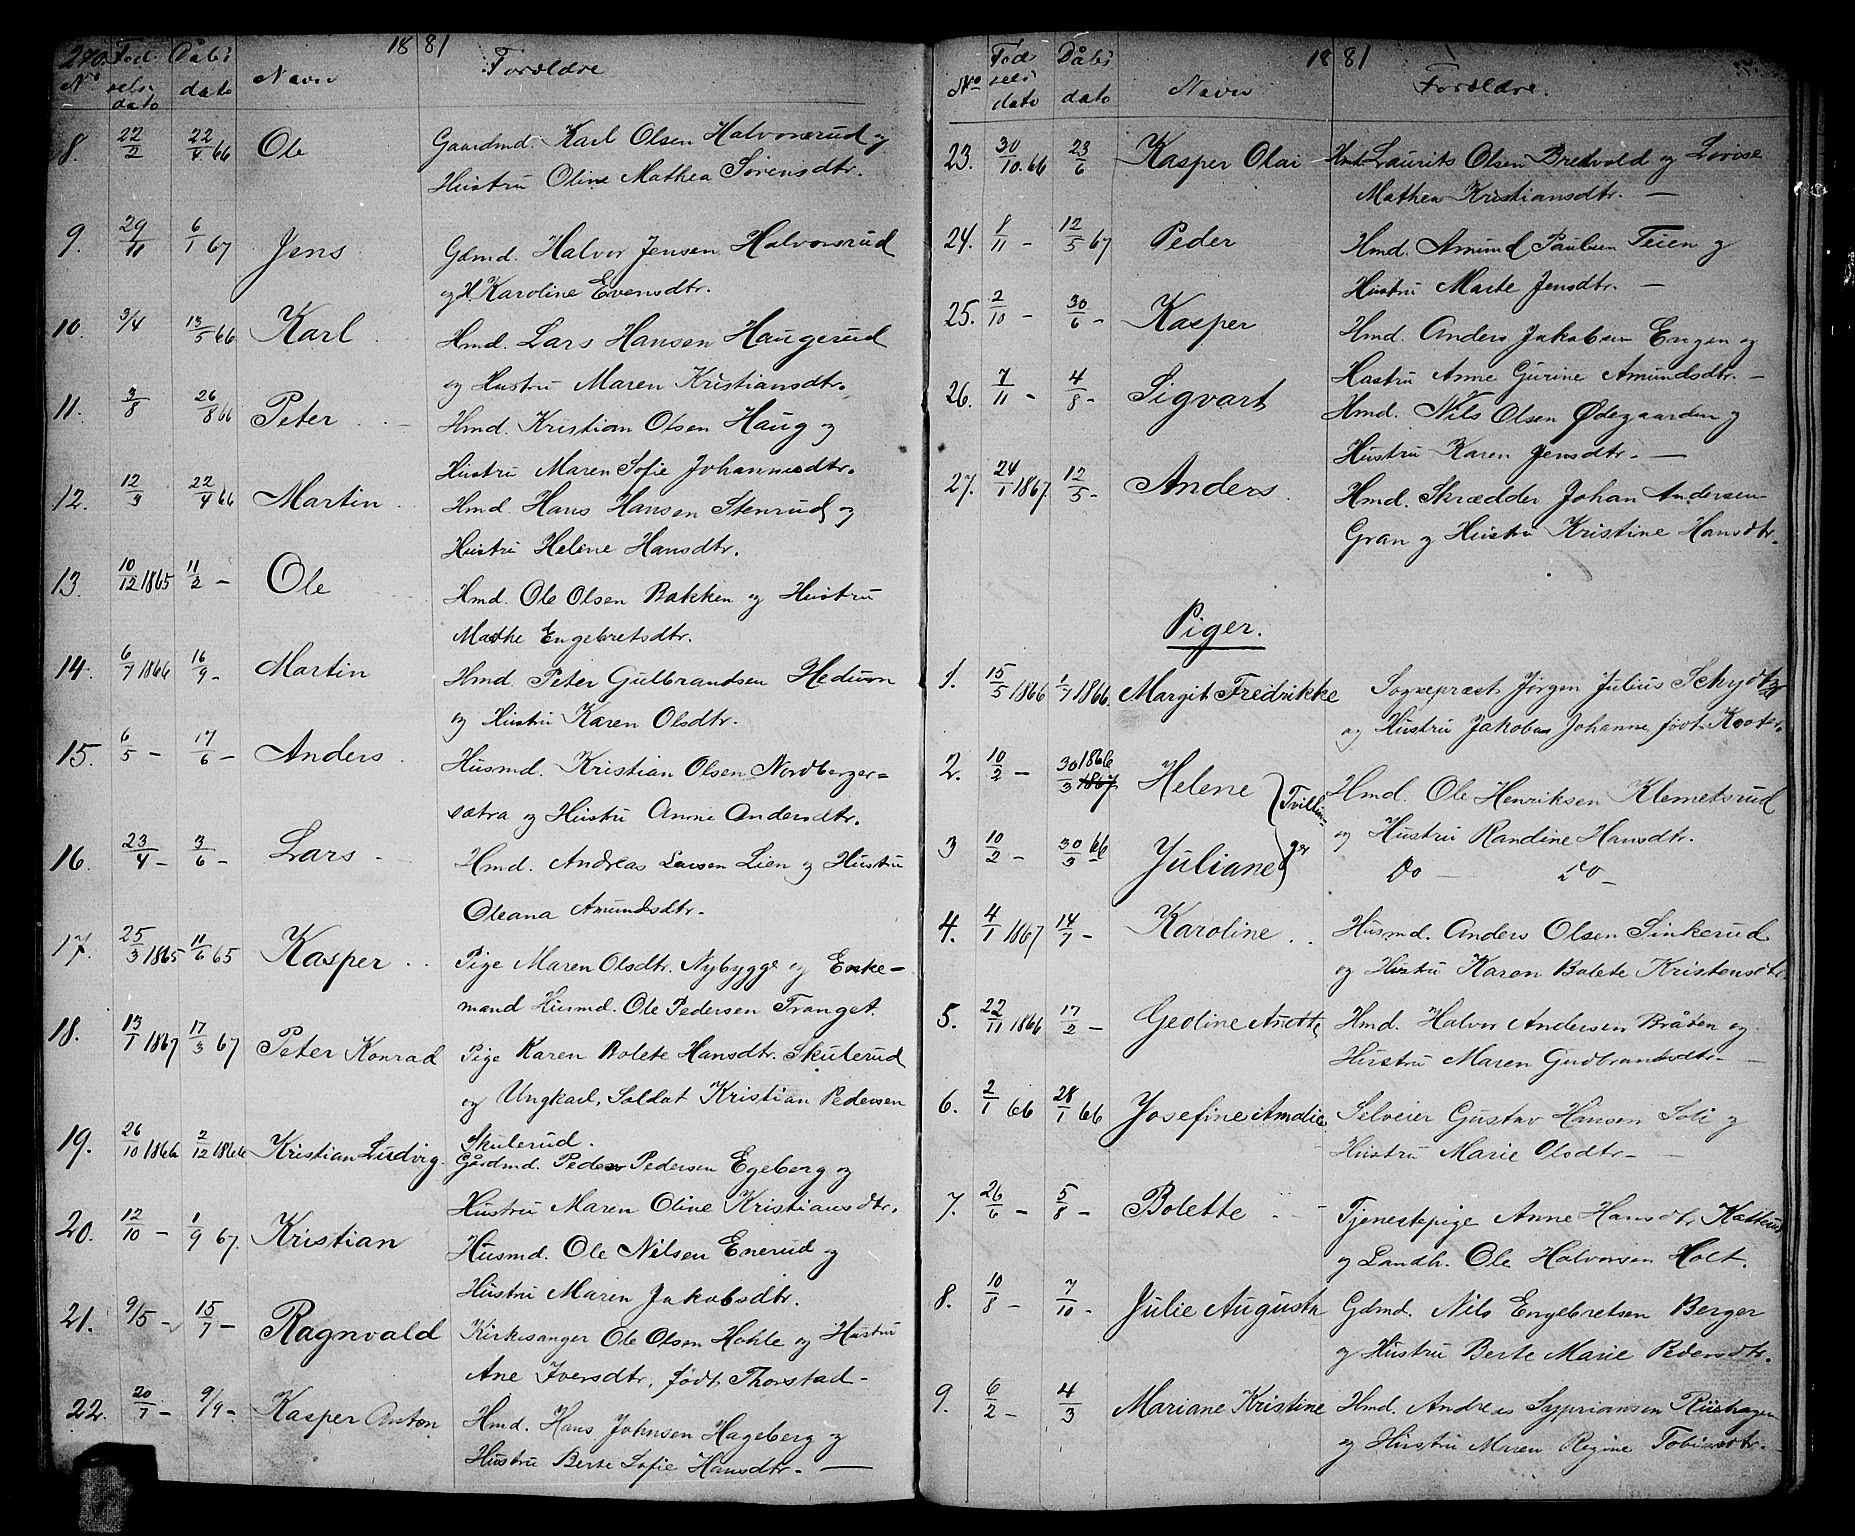 270. 18 81
No Fødselsdato Dåbsdato Navn Forældre
8. 22/2 22/4 66 Ole Gaardmd. Karl Olsen Halvorsrud og
Hustru Oline Mathea Sørensdtr.
9. 29/11 6/1 67 Jens Gdmd. Halvor Jensen Halvorsrud
og H. Karoline Evensdtr.
10. 3/4 13/5 66 Karl Hmd. Lars Hansen Haugerud
og Hustru Maren Kristiansdtr.
11. 3/8 26/8 66 Peter Hmd. Kristian Olsen Haug og
Hustru Maren Sofie Johannesdtr.
12. 12/3 22/4 66 Martin Hmd Hans Hansen Stenrud og
Hustru Helene Hansdtr.
13. 10/12 1865 11/2 – Ole Hmd. Ole Olsen Bakken og Hustru
Mathe Engebretsdtr.
14. 6/7 1866 16/9 – Martin Hmd. Peter Gulbrandsen
og Hustru Karen Olsdtr.
15. 6/5 – 17/6 – Anders Husmd. Kristian Olsen Nordberger=
sætra og Hustru Anne Andersdtr.
16. 23/4 – 3/6 – Lars Hmd. Andreas Larsen Lien og Hustru
Oleana Amundsdtr.
17. 25/3 1865 11/6 65 Kasper Pige Maren Olsdtr. Nybygge og Enke–
mand Husmd. Ole Pedersen Tranget.
18. 13/1 1867 17/3 67 Peter Konrad Pige Karen Bolete Hansdtr. Skulerud
og Ungkarl, Soldat Kristian Pedersen
Skulerud.
19. 26/10 1866 2/12 1866 Kristian Ludvig Gårdmd. Peder Pedersen Egeberg og
Hustru Maren Oline Kristiansdtr.
20. 12/10 – 1/9 67. Kristian Husmd. Ole Nilsen Enerud og
Hustru Maren Jakobsdtr.
21. 9/5 – 15/7 – Ragnvald Kirkesanger Ole Olsen Hohle og Hustru
Ane Iversdtr, født Thorstad –
22. 20/7 – 9/9 – Kasper Anton Hmd. Hans Johnsen Hageberg og
Hustru Berte Sofie Hansdtr. –
18 81
No Fødselsdato Dåbsdato Navn Forældre.
23. 30/10. 66 23/6 Kasper Olai Hmd Laurits Olsen Bredvold og Lovise
Mathea Kristiansdtr. –
24. 8/11 – 12/5 67 Peder Hmd. Amund Paulsen Teien og
Hustru Marte Jensdtr. –
25. 2/10 – 30/6 – Kasper Hmd. Anders Jakobsen Engen og
Hustru Anne Gurine Amundsdtr. –
26. 7/11 – 4/8 – Sigvart Hmd. Nils Olsen Ødegaarden og
Hustru Karen Jensdtr. –
27. 24/1 1867. 12/5 – Anders. Hmd. Skrædder Johan Andersen
Gran og Hustru Kristine Hansdtr.
Piger.
1. 15/5 1866 1/7 1866. Margit Fredrikke Sognepræst Jørgen Julius Schydtz
og Hustru Jakoba Johanne født
2. 10/2 – 30/3 1866 1867 Helene } Tvillin– Hmd. Ole Henriksen Klemetsrud
og Hustru Randine Hansdtr.
3 10/2 – 30/3 66 Juliane } ger Do – Do –
4. 4/1 1867 14/7 – Karoline Husmd. Anders Olsen Sinkerud
og Hustru Karen Bolete Kristensdtr
5. 22/11 1866 17/2 – Geoline Anette Hmd. Halvor Andersen Bråten og
Hustru Maren Gudbrandsdtr –
6. 2/1 66 28/1 66 Josefine Amalie Selveier Gustav Hansen Soli og
Hustru Marie Olsdtr –
7. 26/6 – 5/8 – Bolette Tjenestepige Anne Hansdtr Katterud
og Landh. Ole Halvorsen Holt.
8. 10/8 – 7/10 – Julie Augusta Gdmd. Nils Engebretsen Berger
og Hustru Berte Marie Pedersdtr.
9. 6/2 – 4/3 Mariane Kristine Hmd. Andreas Sypriansen
og Hustru Maren Regine Tobiasdtr. –